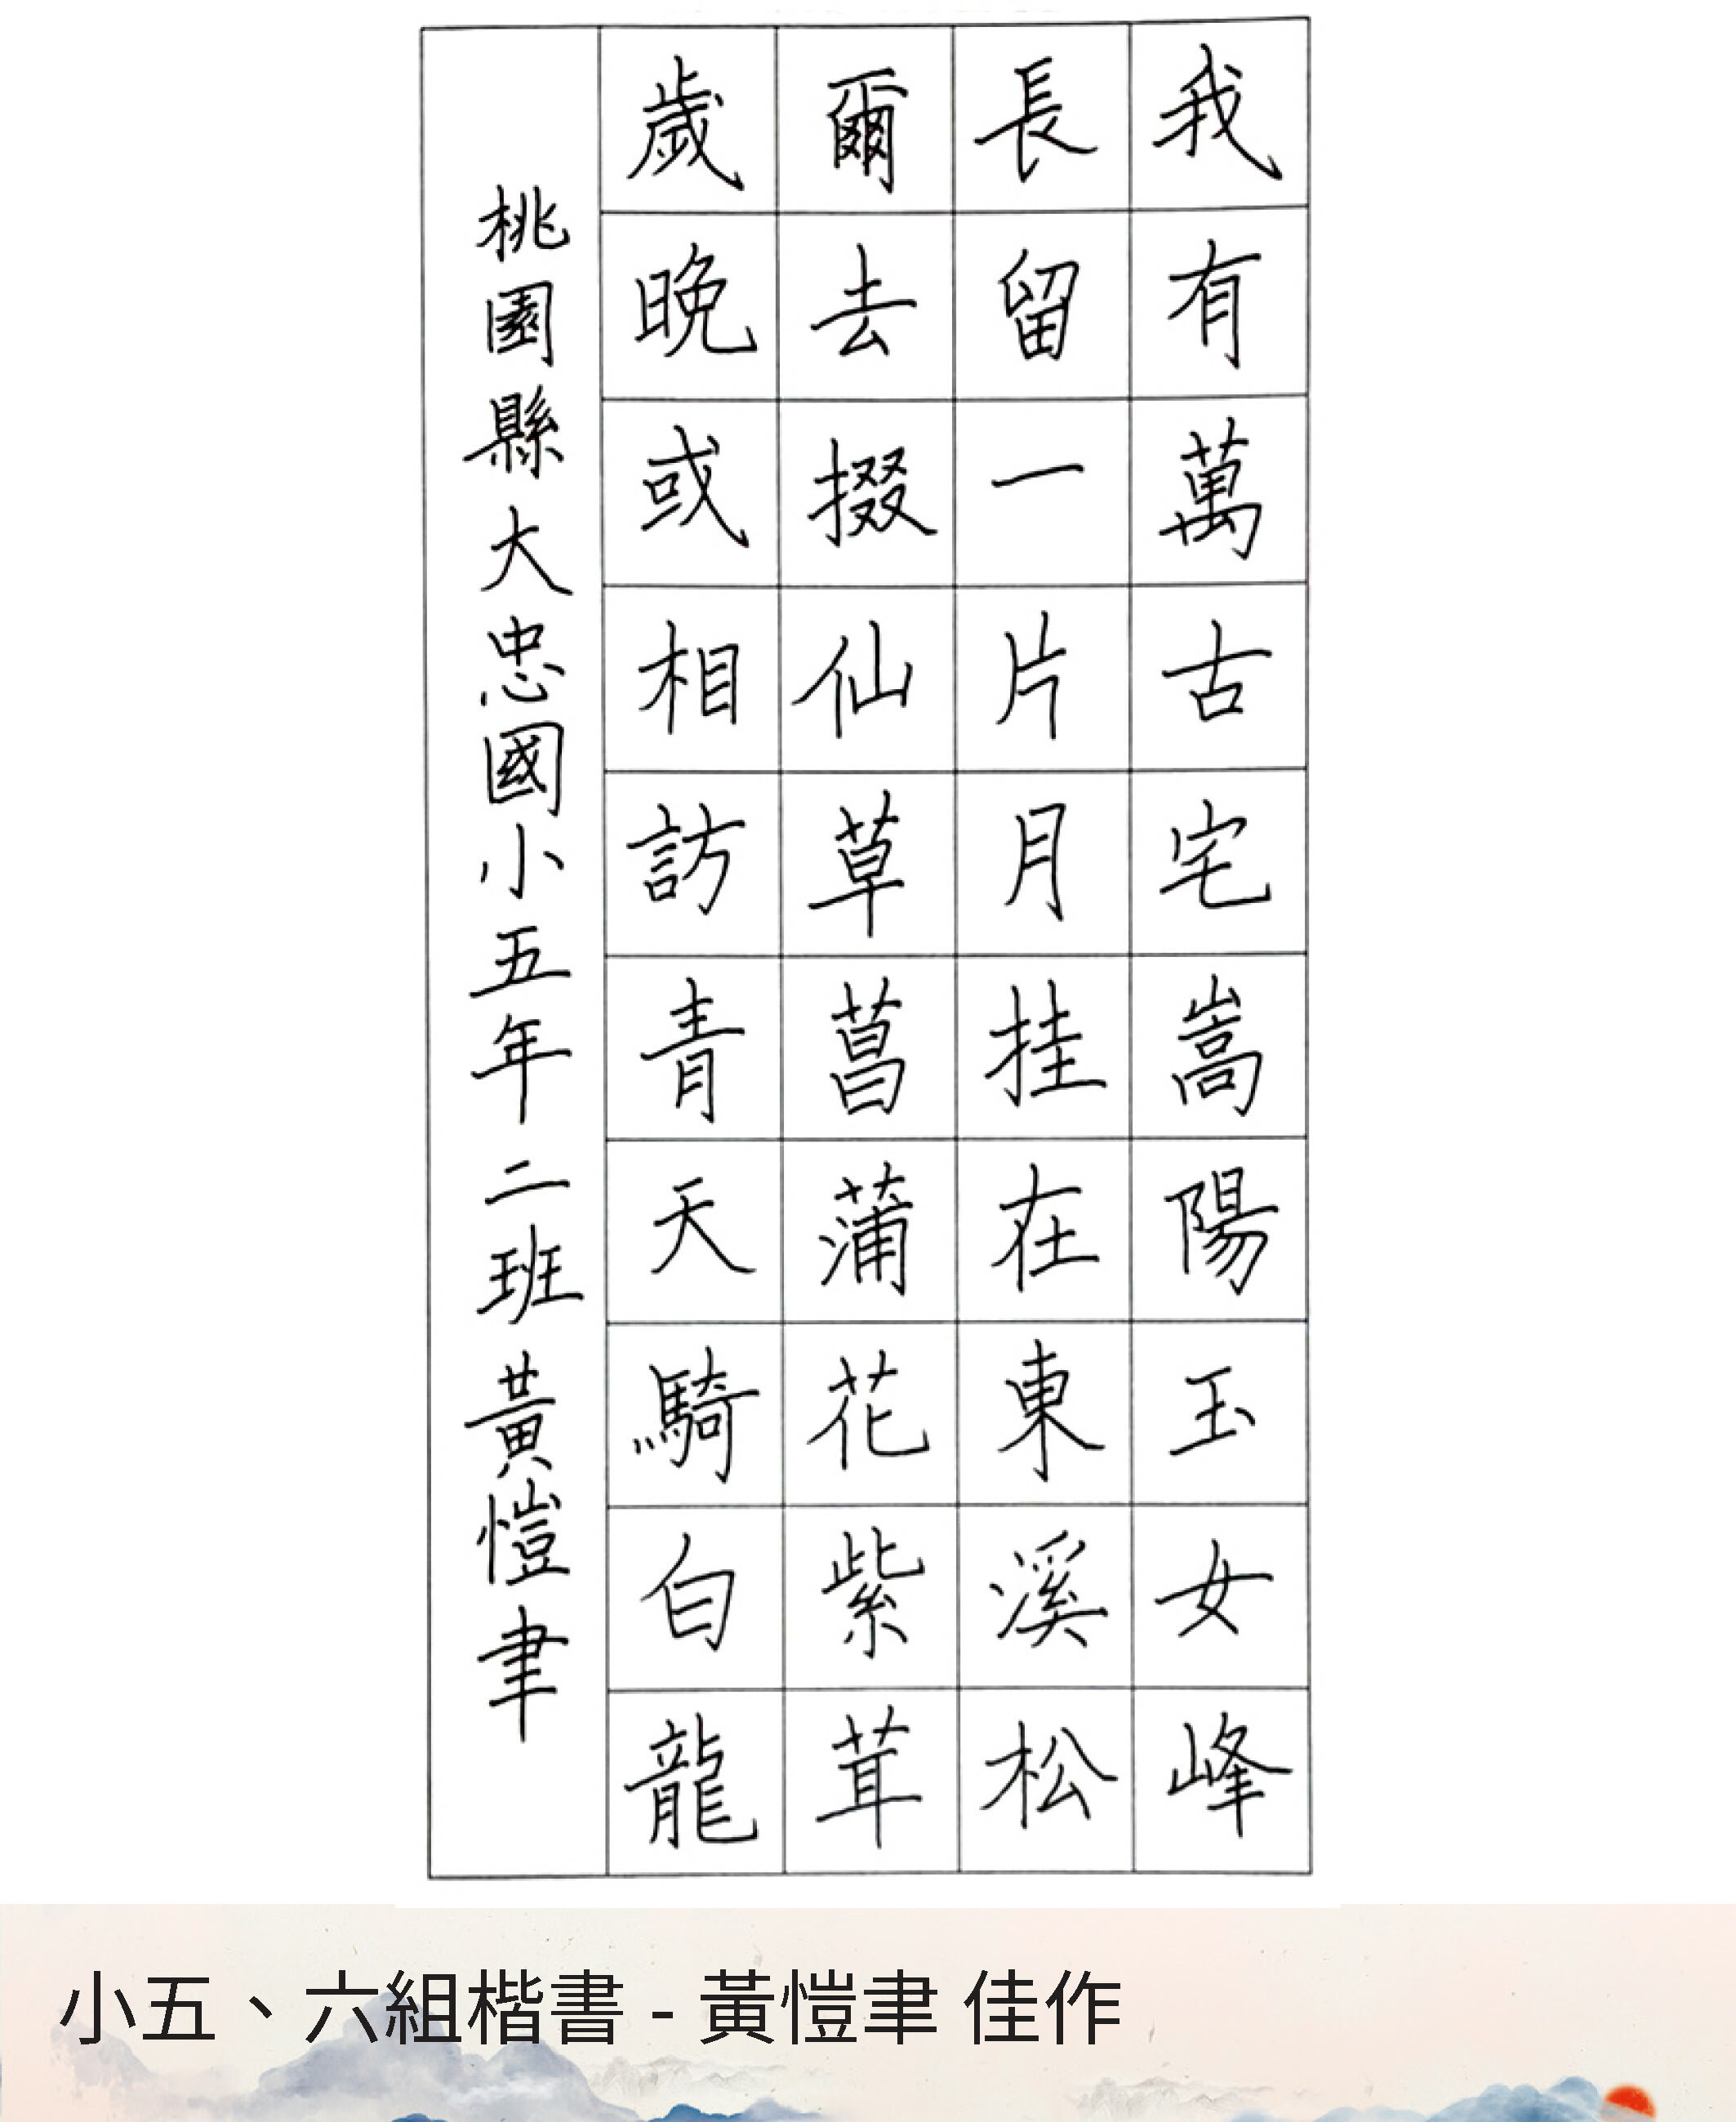 我有萬古宅嵩陽玉女峰
長留一片月挂在東溪松
爾去掇仙草菖蒲花紫茸
歲晚或相訪青天騎白龍
桃園縣大忠國小五年二班黃愷聿
小五、六組楷書 - 黃愷聿 佳作